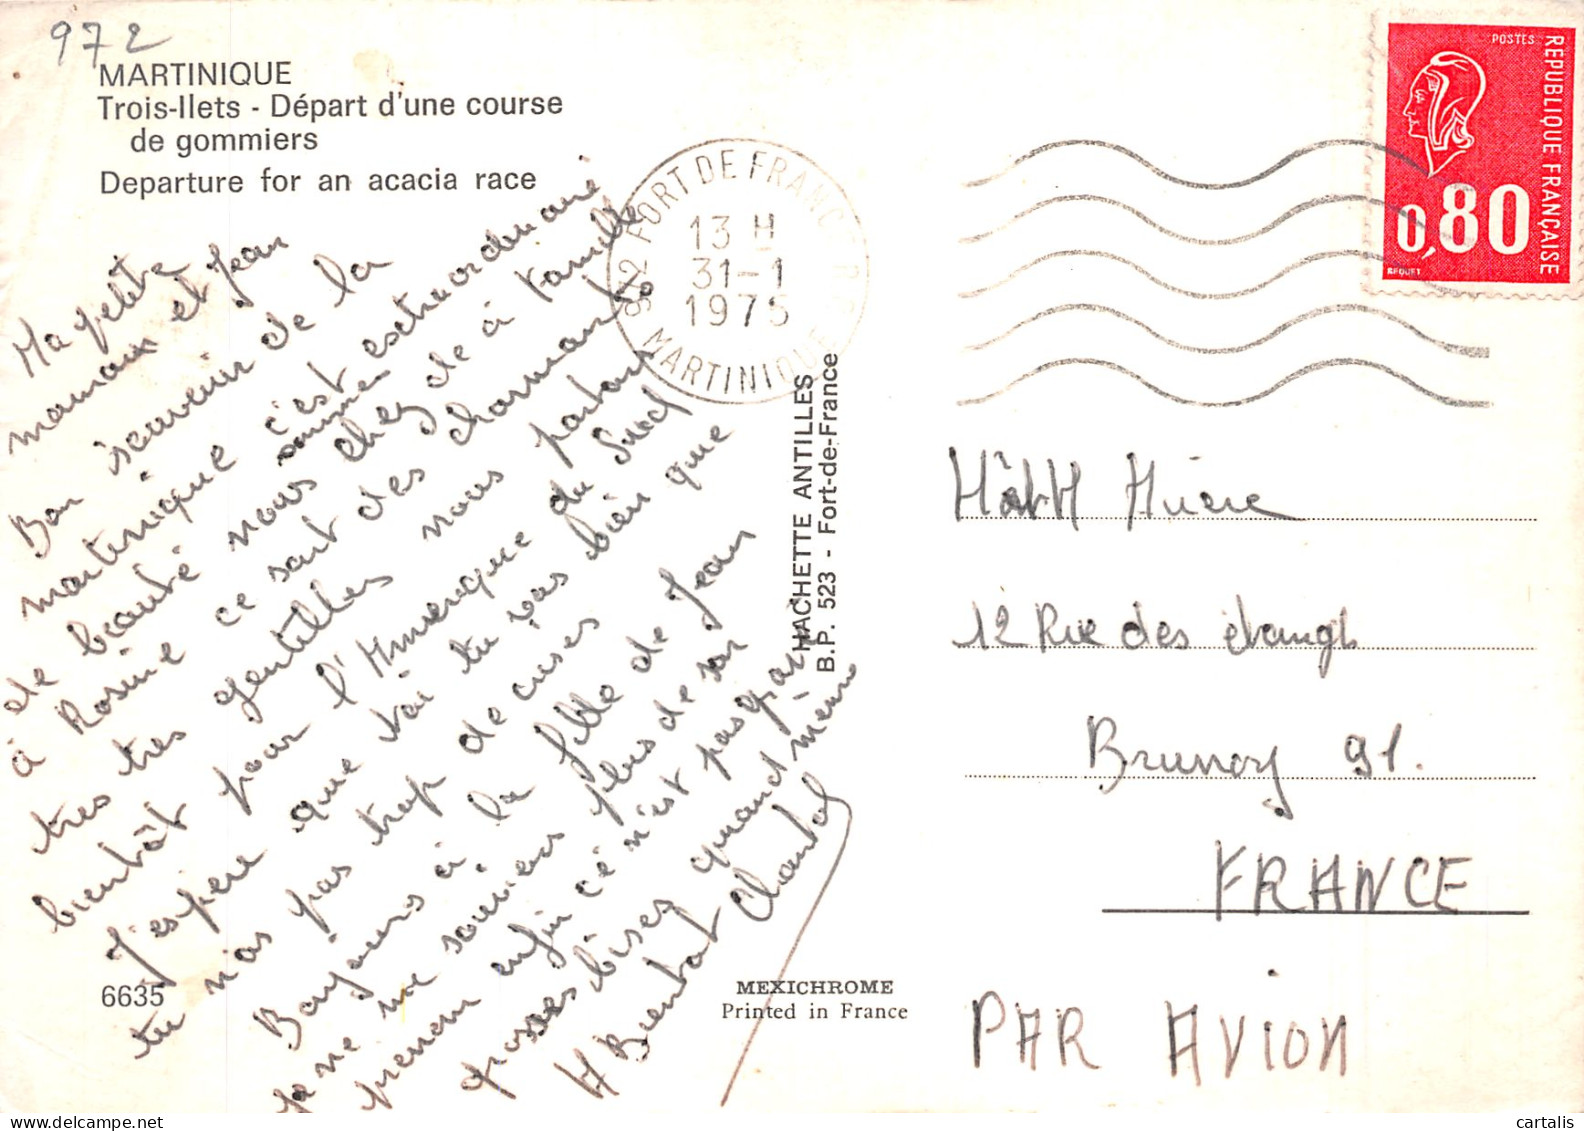 972
MARTINIQUE
Trois-Ilets - Départ d'une course
de gommiers
Departure for an acacia race
Ma petite
maman et Jean
Bon souvenir de la
martinique c'est extraordinaire
de beauté nous sommes chez de à famille
à Rosine ce sont des charmants
tres tres gentilles nous partons
bientôt pour l'Amerique du Sud
J'espere que vai tu vas bien que
tu n'as pas trop de crises
Bonjours à la fille de Jean
je ne me souviens plus de son
prenom enfin ce n'est pas grave
grosses bises quand même
A Bientot Chantal
6635
972 FORT DE FRANCE
13 H
31-1
1975
MARTINIQUE
HACHETTE ANTILLES
B.P. 523 - Fort-de-France
MEXICHROME
Printed in France
POSTES
REPUBLIQUE FRANÇAISE
0,80
BEQUET
12 Rue des
Brunoy 91.
FRANCE
PAR AVION
cartalis